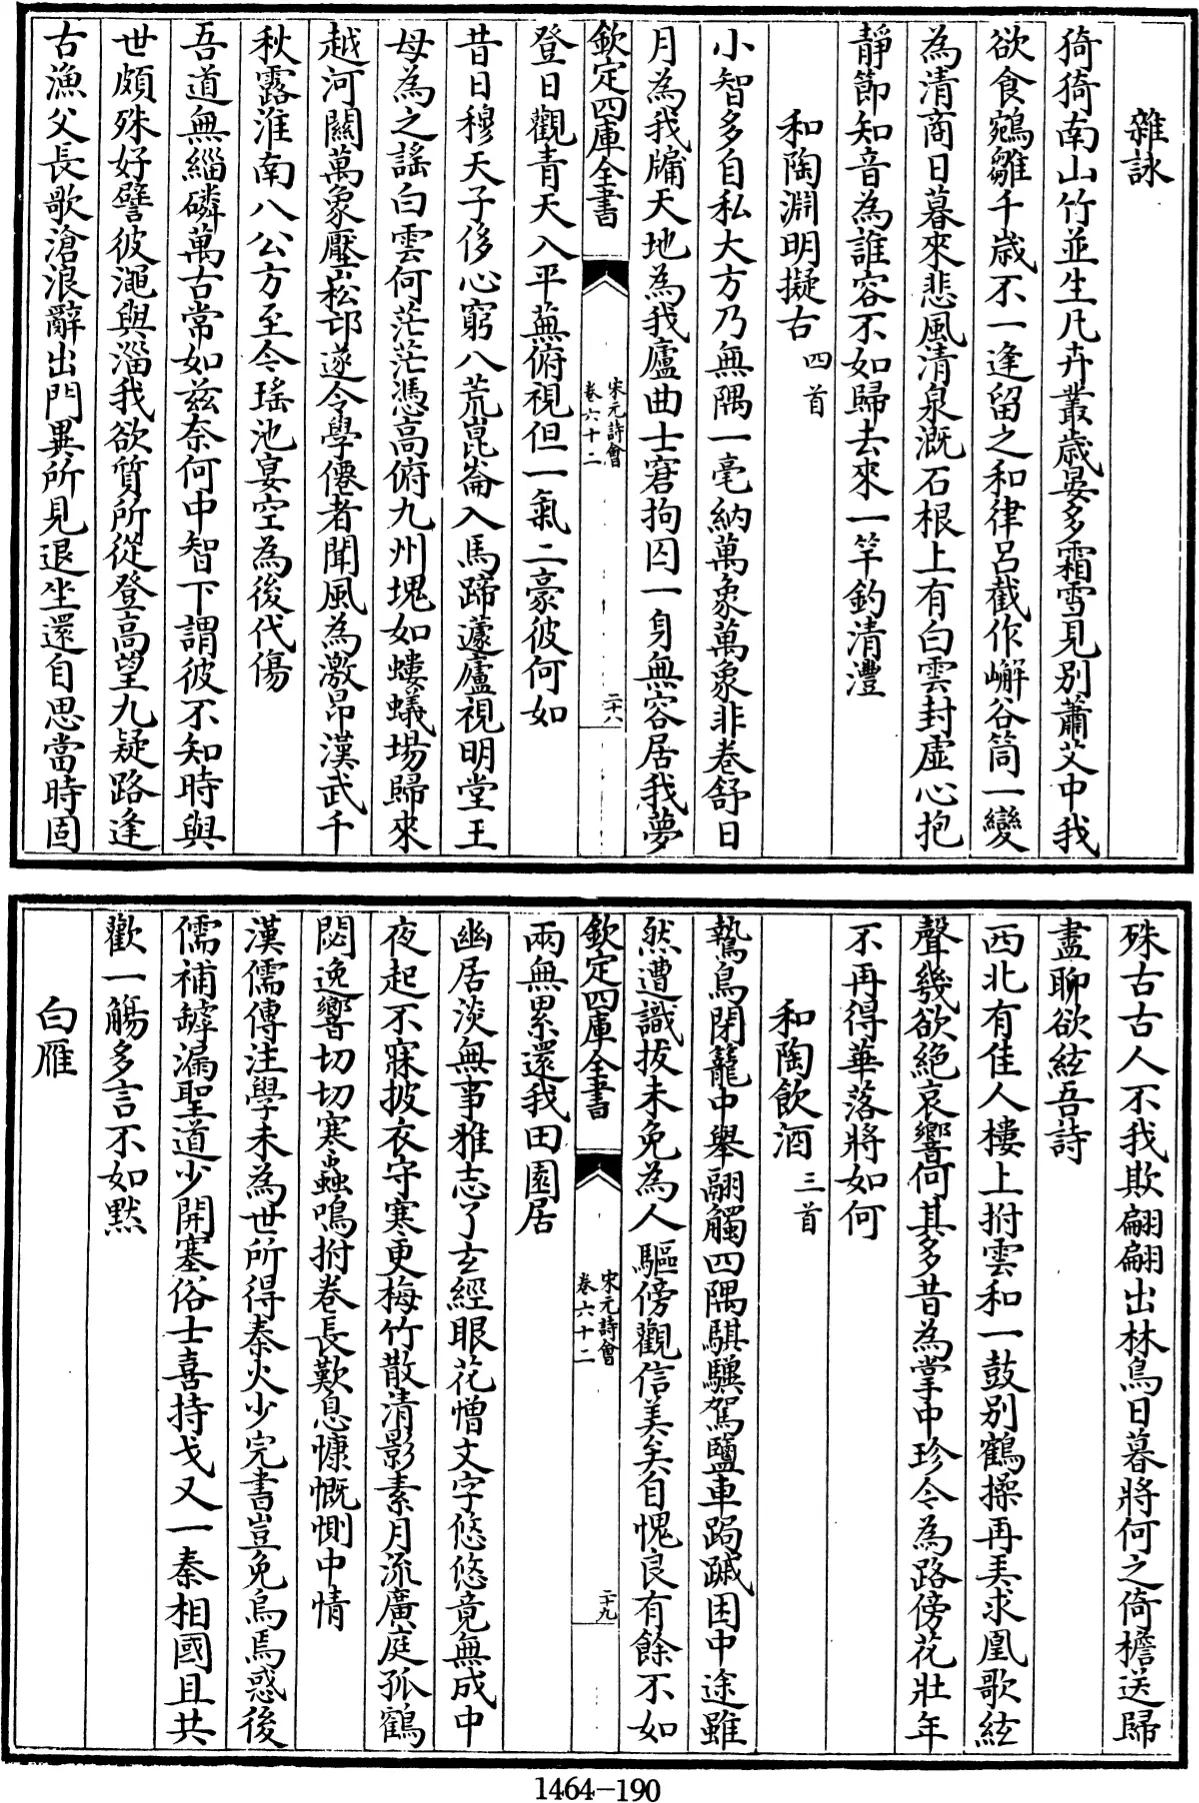 雜詠
猗猗南山竹並生凡卉叢歳晏多霜雪見別蕭艾中我
欲食鵷雛千歳不一逢留之和律呂截作嶰谷筒一變
為清商日暮來悲風清泉溉石根上有白雲封虛心抱
靜節知音為誰容不如歸去來一竿釣清灃
和陶淵明擬古四首
小智多自私大方乃無隅一毫納萬象萬象非卷舒日
月為我牖天地為我廬曲士窘拘囚一身無容居我夢
欽定四庫全書
宋元詩會
卷六十二
二十八
登日觀青天入平蕪俯視但一氣二豪彼何如
昔日穆天子侈心窮八荒崑崙入馬蹄蘧廬視明堂王
母為之謠白雲何茫茫憑高俯九州塊如螻蟻場歸來
越河關萬象壓崧邙遂令學僊者聞風為激昂漢武千
秋露淮南八公方至今瑤池宴空為後代傷
吾道無緇磷萬古常如兹奈何中智下謂彼不知時與
世頗殊好譬彼澠與淄我欲質所從登高望九疑路逢
古漁父長歌滄浪辭出門異所見退坐還自思當時固
殊古古人不我欺翩翩出林鳥日暮將何之倚檐送歸
盡聊欲絃吾詩
西北有佳人樓上拊雲和一鼓別鶴操再弄求凰歌絃
聲幾欲絶哀響何其多昔為掌中珍今為路傍花壯年
不再得華落將如何
和陶飲酒三首
鷙鳥閉籠中舉翮觸四隅騏驥駕鹽車跼蹐困中途雖
然遭識拔未免為人驅傍觀信美矣自愧良有餘不如
欽定四庫全書
宋元詩會
卷六十二
二十九
兩無累還我田園居
幽居淡無事雅志了玄經眼花憎文字悠悠竟無成中
夜起不寐披衣守寒更梅竹散清影素月流廣庭孤鶴
閟逸響切切寒蟲鳴拊卷長歎息慷慨惻中情
漢儒傳注學未為世所得秦火少完書豈免烏焉惑後
儒補罅漏聖道少開塞俗士喜持戈又一秦相國且共
歡一觴多言不如默
白雁
1464-190